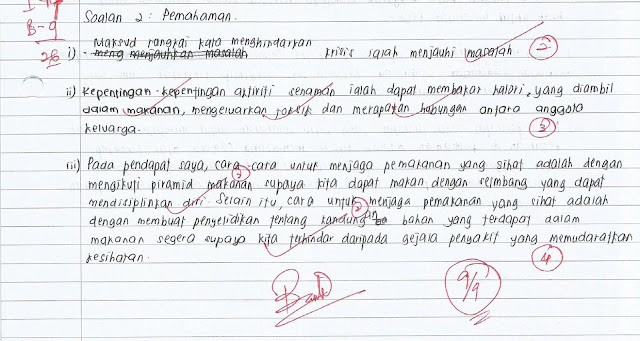 B-9
26
Soalan 2 : Pemahaman.
i) Maksud rangkai kata menghindarkan
meng menjauhkan masalah krisis ialah menjauhi masalah 2
ii) Kepentingan-kepentingan aktiviti senaman ialah dapat membakar kalori, yang diambil
dalam makanan, mengeluarkan toksik dan merapatkan hubungan antara anggota
keluarga. 3
iii) Pada pendapat saya, cara-cara untuk menjaga pemakanan yang sihat adalah dengan
mengikuti piramid makanan supaya kita dapat makan dengan seimbang yang dapat
mendisiplinkan diri. Selain itu, cara untuk menjaga pemakanan yang sihat adalah
dengan membuat penyelidikan tentang kandungan bahan yang terdapat dalam
makanan segera supaya kita terhindar daripada gejala penyakit yang memudaratkan
kesihatan. 4
9/9